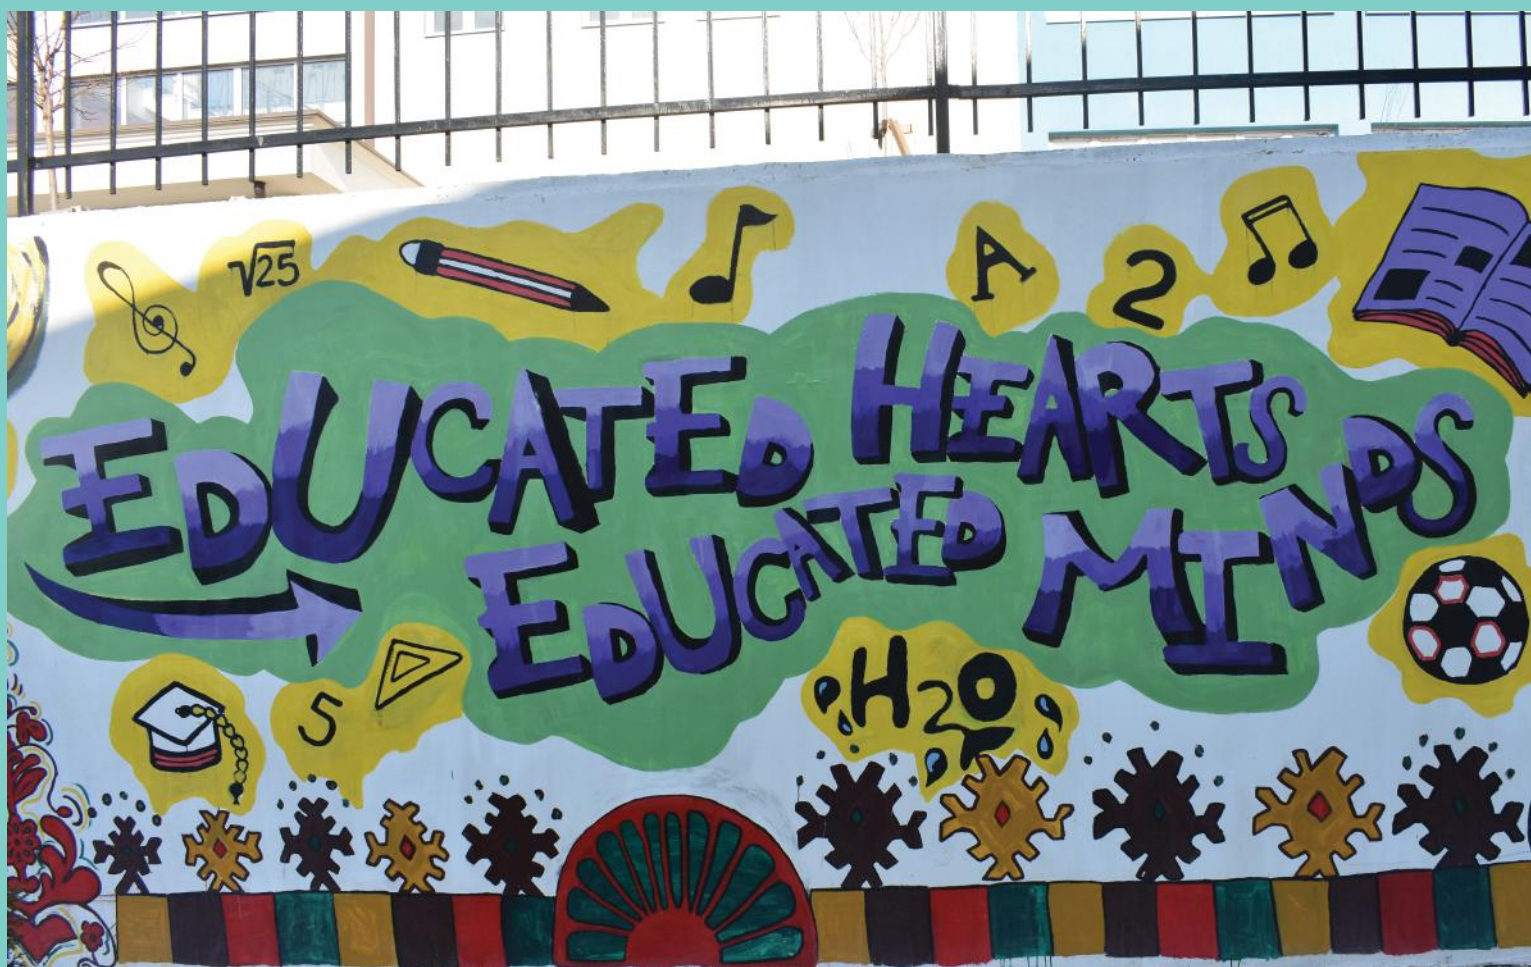 √25
A
2
EDUCATED HEARTS
EDUCATED MINDS
5
H2O